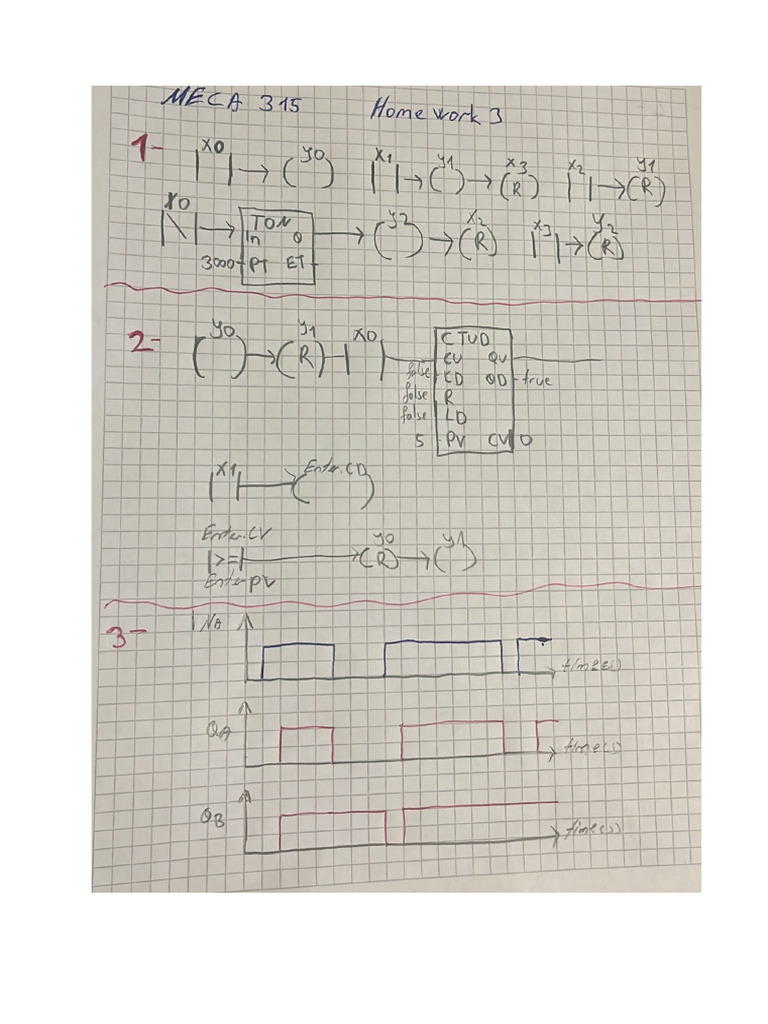 MECA 315 Homework 3
1-
X0 y0 X1 y1 X3 X2 y1
R R
X0 TON y2 X2 X3 y2
In Q R R
3000 PT ET
2- y0 y1 X0 CTUD
R CU QU
false CD QD true
false R
false LD
5 PV CV 0
X1 Enter.CD
Enter.CV y0 y1
>= R
Enter PV
3- INA
time(s)
QA time(s)
QB time(s)